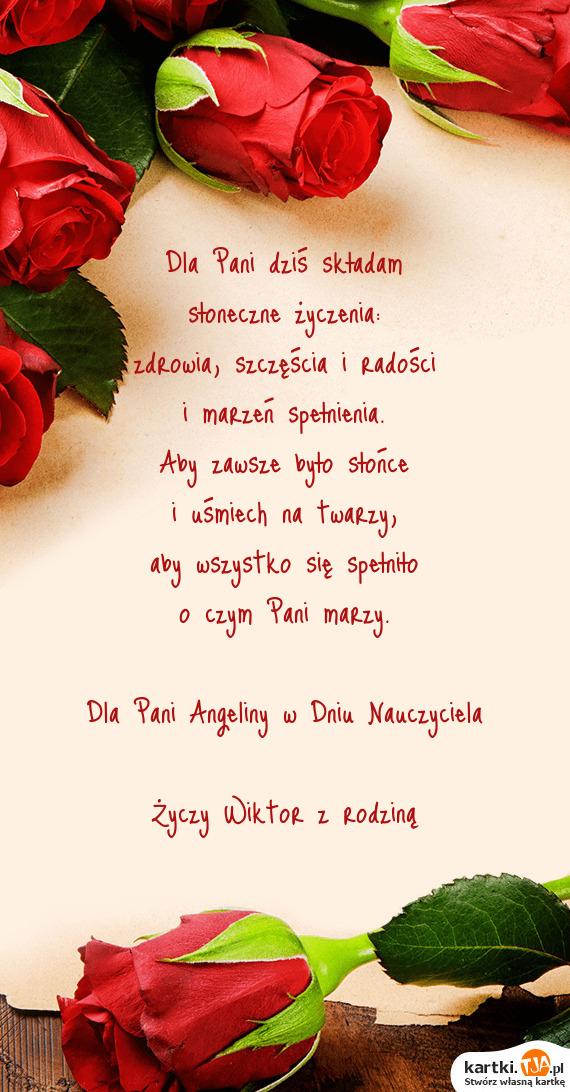 Dla Pani dziś składam
słoneczne życzenia:
zdrowia, szczęścia i radości
i marzeń spełnienia.
Aby zawsze było słońce
i uśmiech na twarzy,
aby wszystko się spełniło
o czym Pani marzy.
Dla Pani Angeliny w Dniu Nauczyciela
Życzy Wiktor z rodziną
kartki.TJA.pl
Stwórz własną kartkę